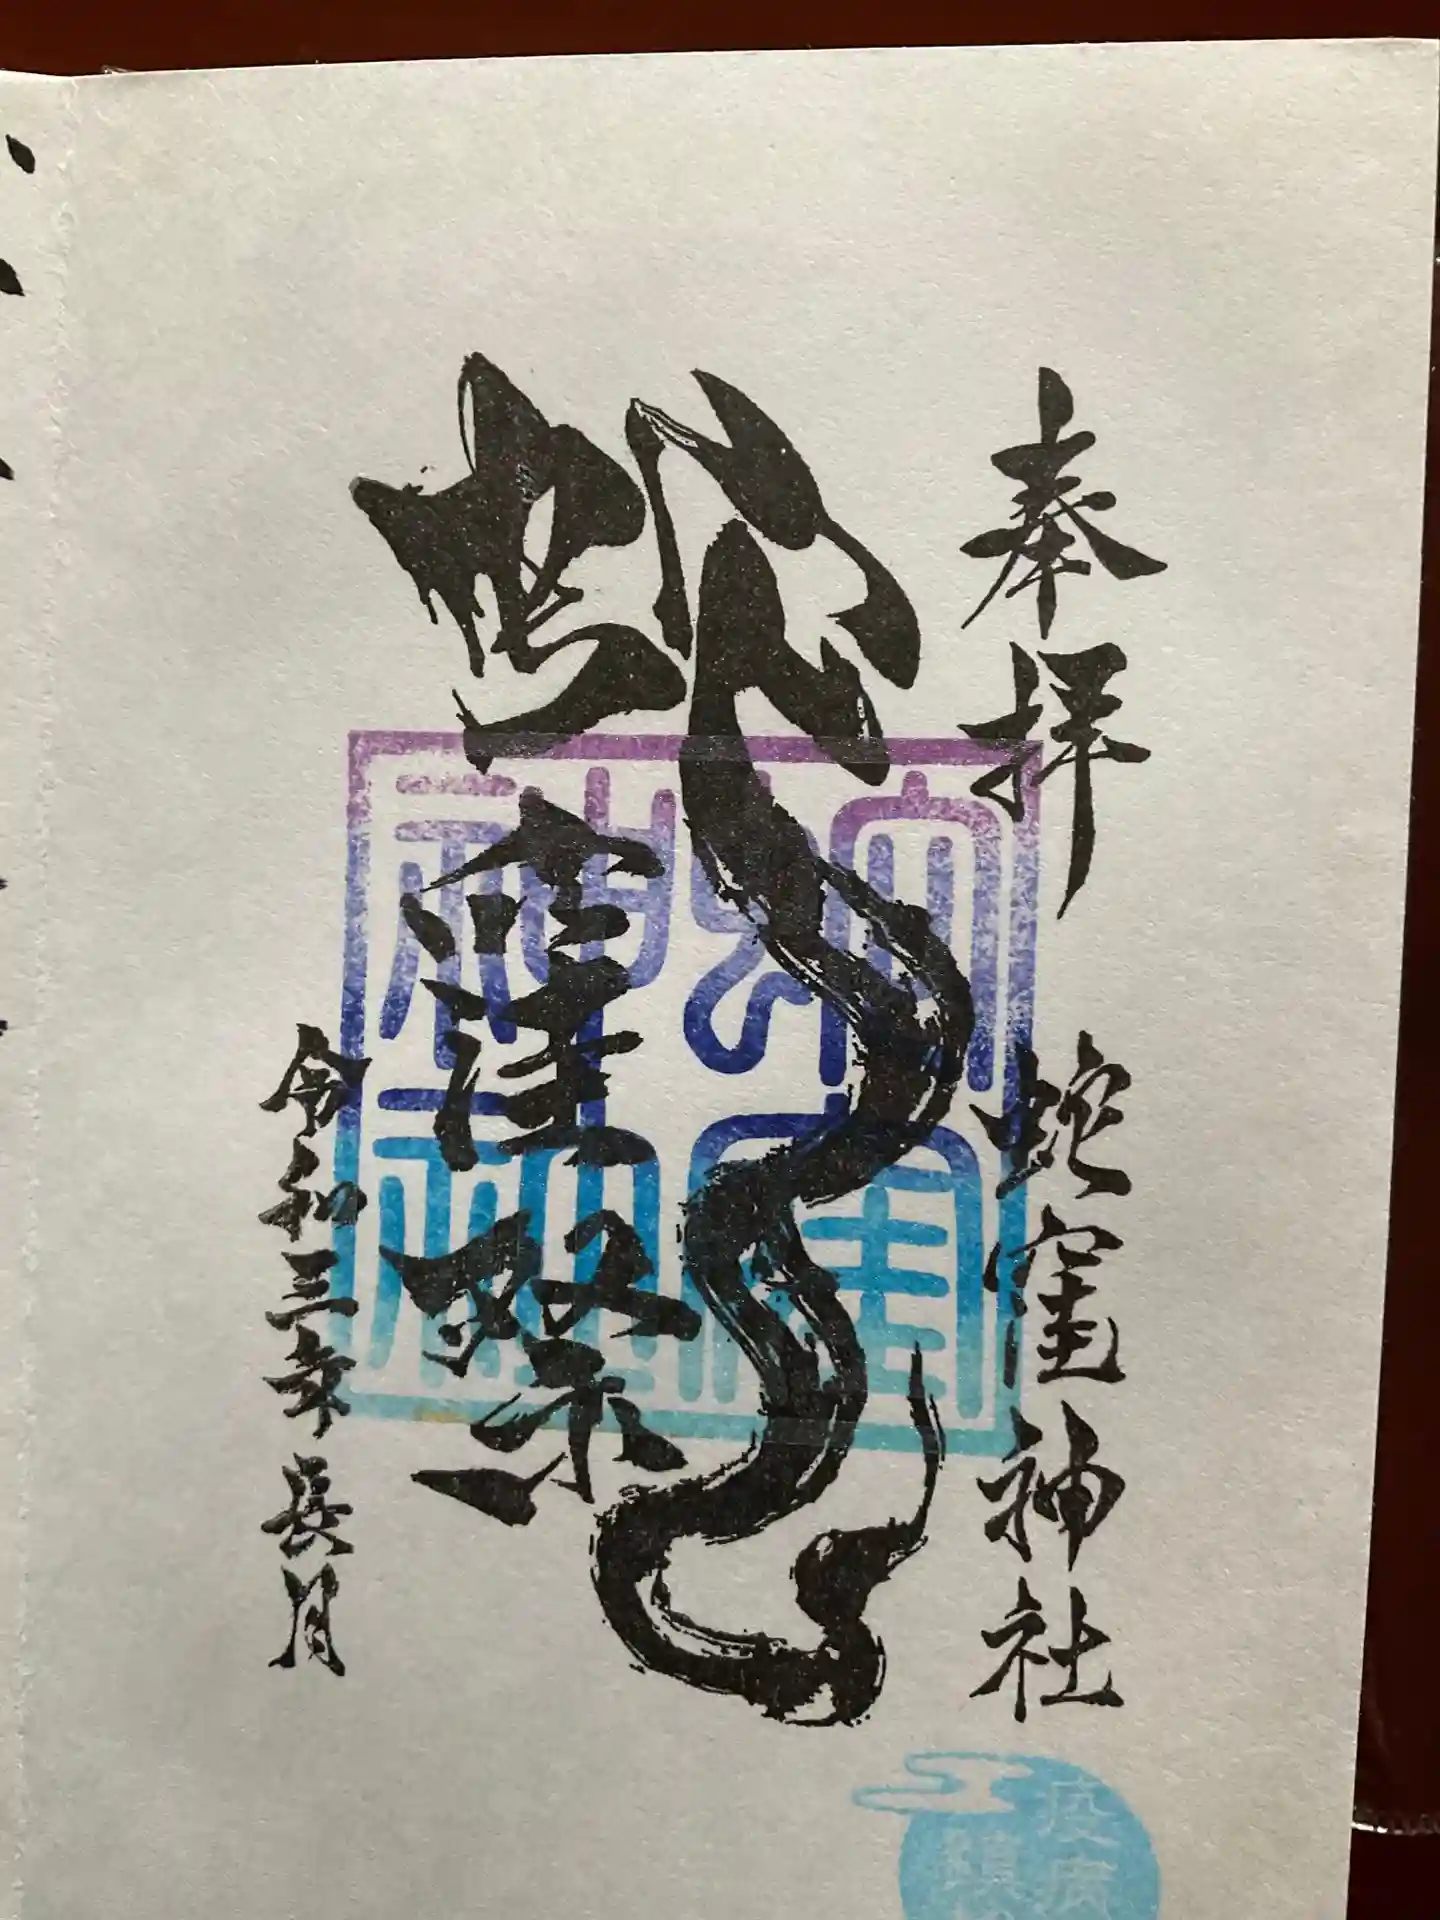 奉拝
蛇窪神社
蛇窪祭
令和三年長月
蛇窪神社
疫
鎮